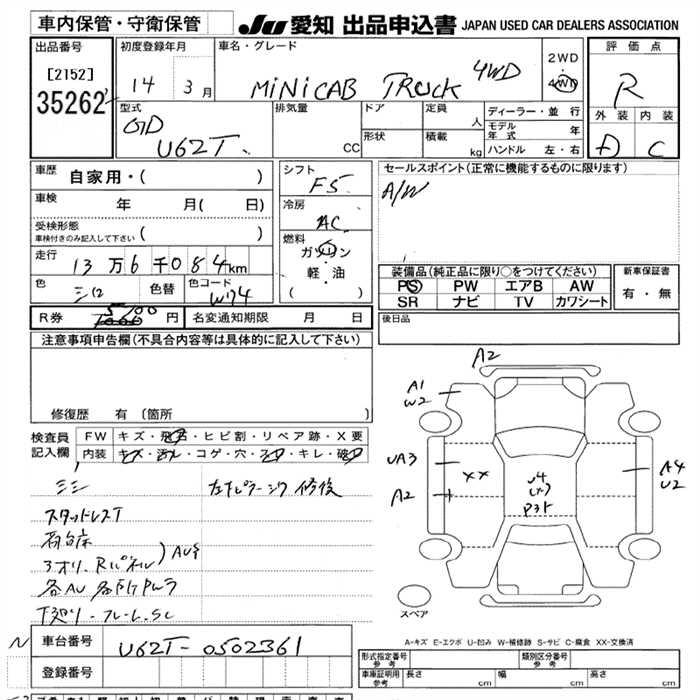 車内保管・守衛保管
JU 愛知 出品申込書 JAPAN USED CAR DEALERS ASSOCIATION
出品番号
[2152]
35262
初度登録年月
14 3月
車名・グレード
MINICAB TRUCK 4WD
2WD
・
4WD
評価点
R
外装 内装
D C
型式
GD
U62T
排気量
CC
ドア
形状
定員
人
積載
kg
ディーラー・並行
モデル年式 年
ハンドル 左・右
車歴
自家用・( )
車検
年 月( 日)
受検形態
車検付きのみ記入して下さい ( )
走行
13万6千084km
色
シロ
色替
色コード
W74
シフト
F5
冷房
AC
燃料
ガソリン
・
軽・油
( )
セールスポイント(正常に機能するものに限ります)
A/W
装備品(純正品に限り○をつけてください)
PS PW エアB AW
SR ナビ TV カワシート
新車保証書
有・無
R券
円
名変通知期限 月 日
後日品
注意事項申告欄(不具合内容等は具体的に記入して下さい)
修復歴 有 〔箇所 〕
検査員
記入欄
FW キズ・飛石・ヒビ割・リペア跡・X要
内装 キズ・汚れ・コゲ・穴・スレ・キレ・破れ
スタッドレスT
荷台床
3オリ.Rパネル)AU
下廻リ・フレームSC
修復
A2
A1
W2
UA3
A2
XX
A4
U2
スペア
A-キズ E-エクボ U-凹み W-補修跡 S-サビ C-腐食 XX-交換済
車台番号
U62T-0502361
登録番号
形式指定番号
参考
類別区分番号
参考
車庫証明用
参考
長さ cm
幅 cm
高さ cm